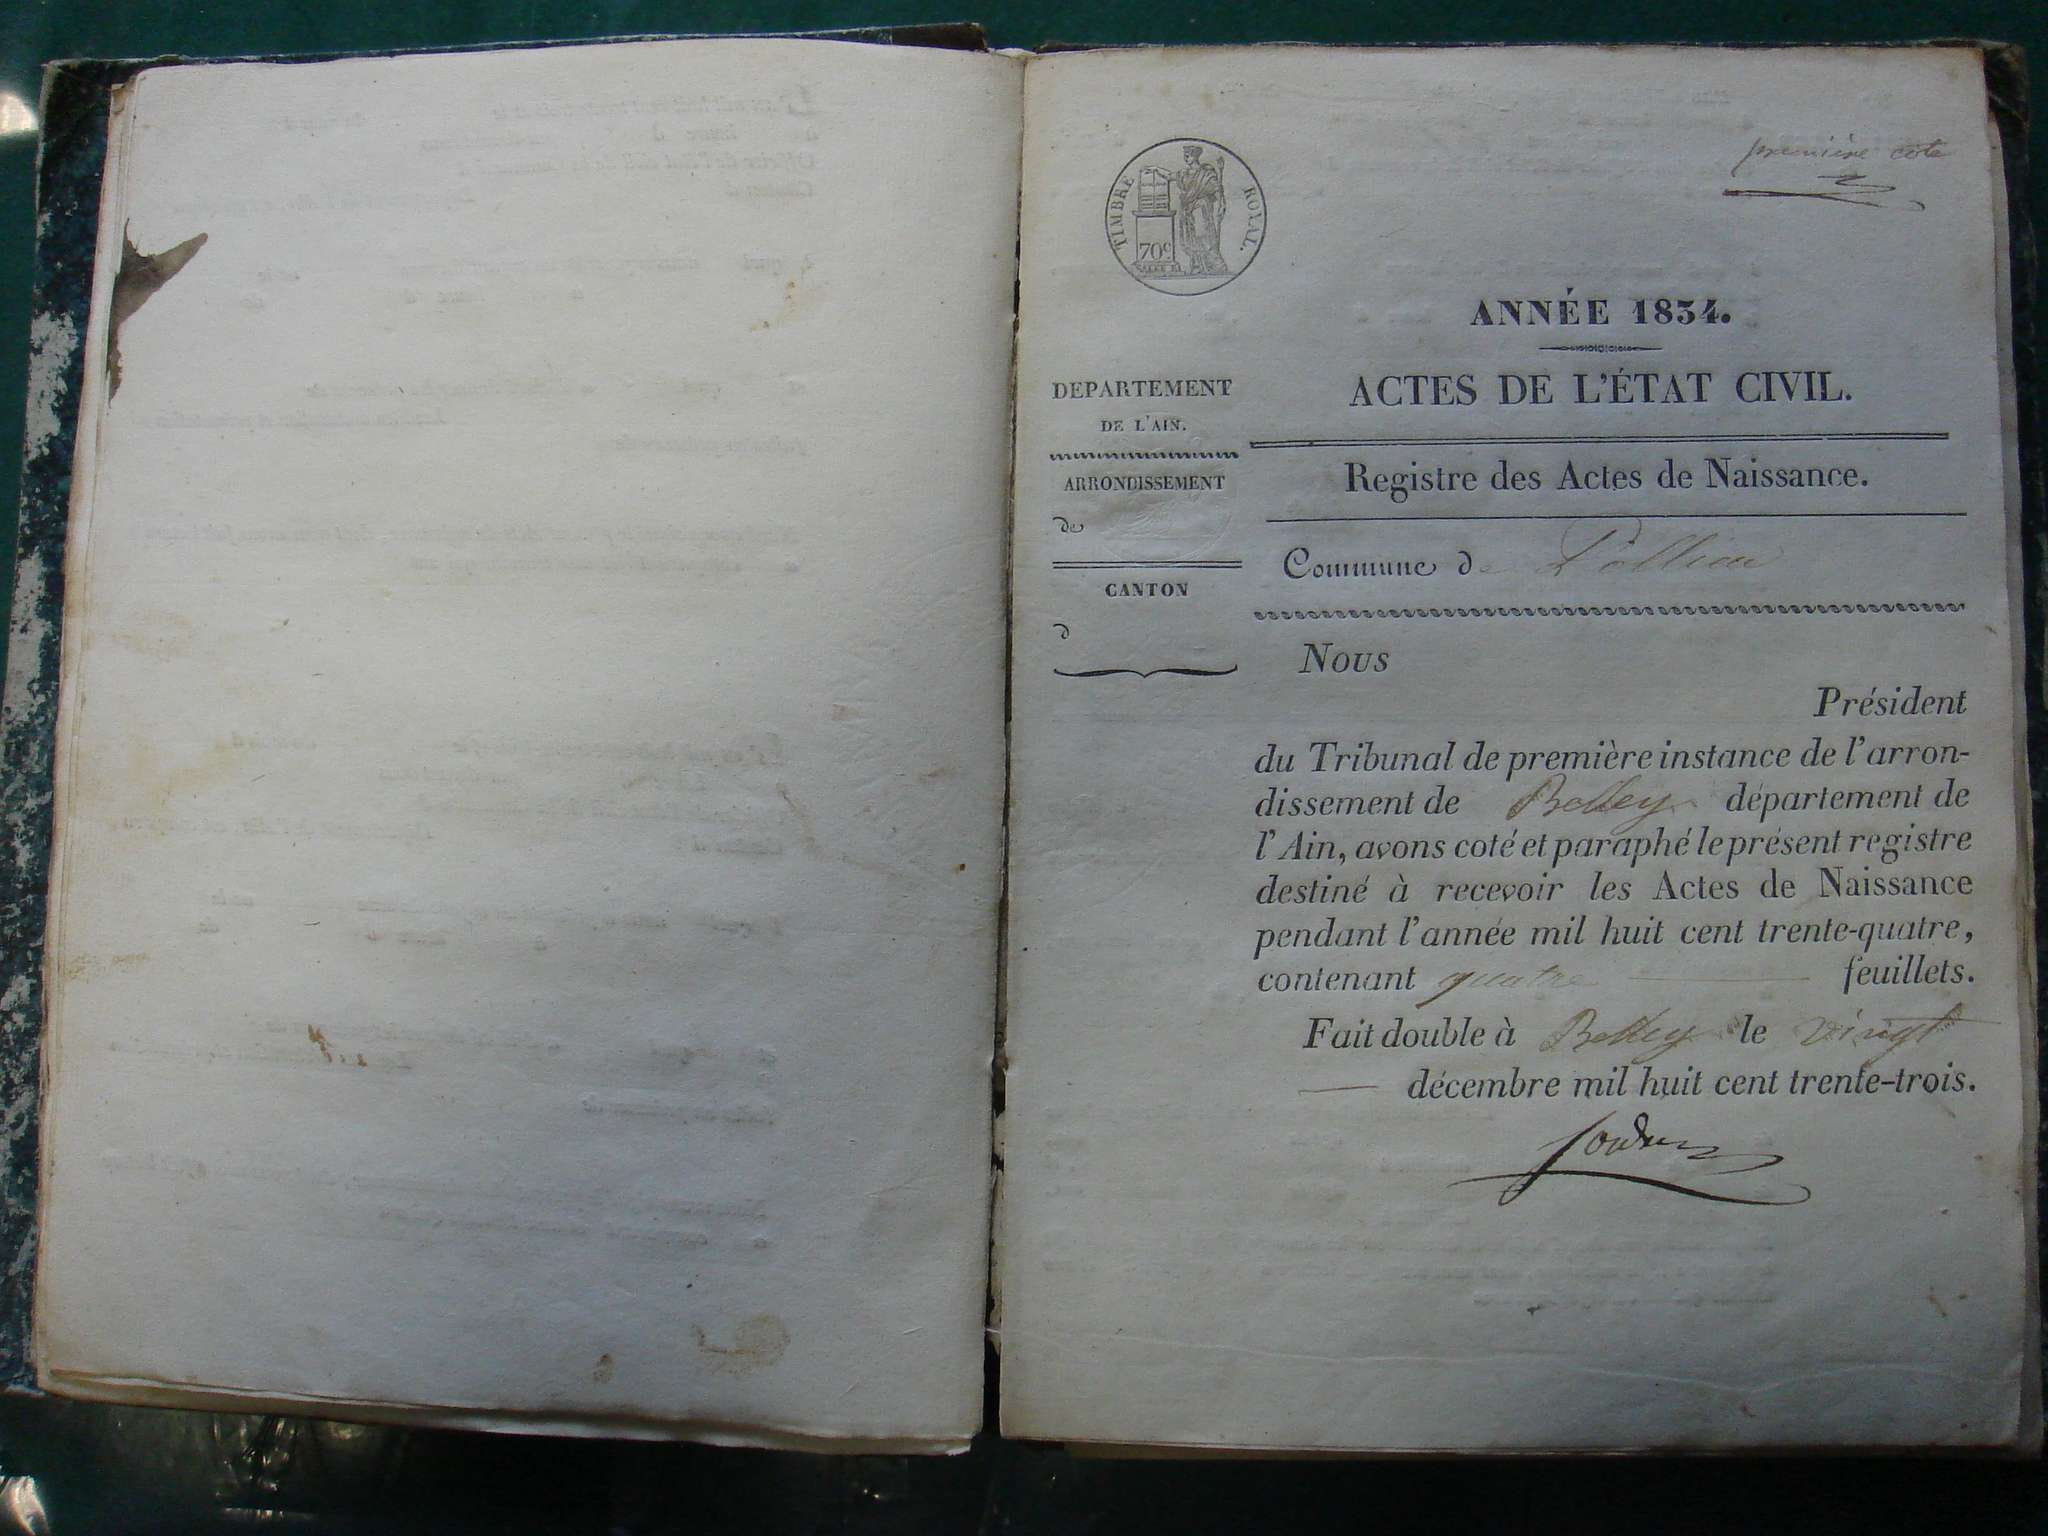 première cote
TIMBRE ROYAL.
70c
ANNÉE 1834.
ACTES DE L'ÉTAT CIVIL.
DEPARTEMENT
DE L'AIN.
ARRONDISSEMENT
de
CANTON
d
Registre des Actes de Naissance.
Commune de Pollieu
Nous
Président
du Tribunal de première instance de l'arron-
dissement de Belley département de
l'Ain, avons coté et paraphé le présent registre
destiné à recevoir les Actes de Naissance
pendant l'année mil huit cent trente-quatre,
contenant quatre feuillets.
Fait double à Belley le vingt
décembre mil huit cent trente-trois.